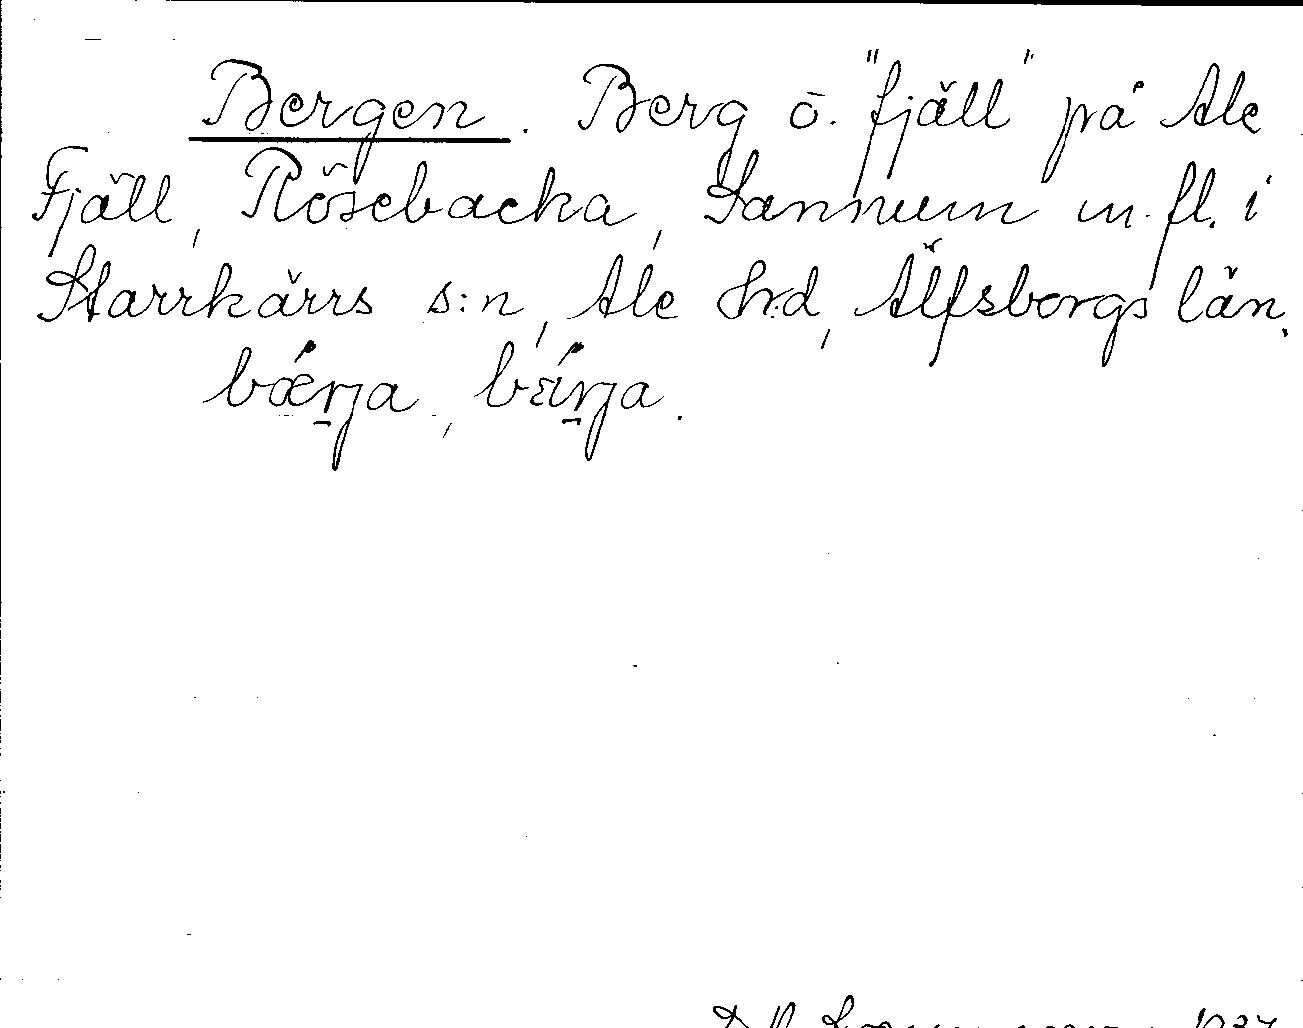 Bergen. Berg o. "fjäll" på Ale
Fjäll, Rösebacka, Sannum m. fl. i
Starrkärrs s:n, Ale hrd, Älfsborgs län.
bǽrja, bɛ́irja.